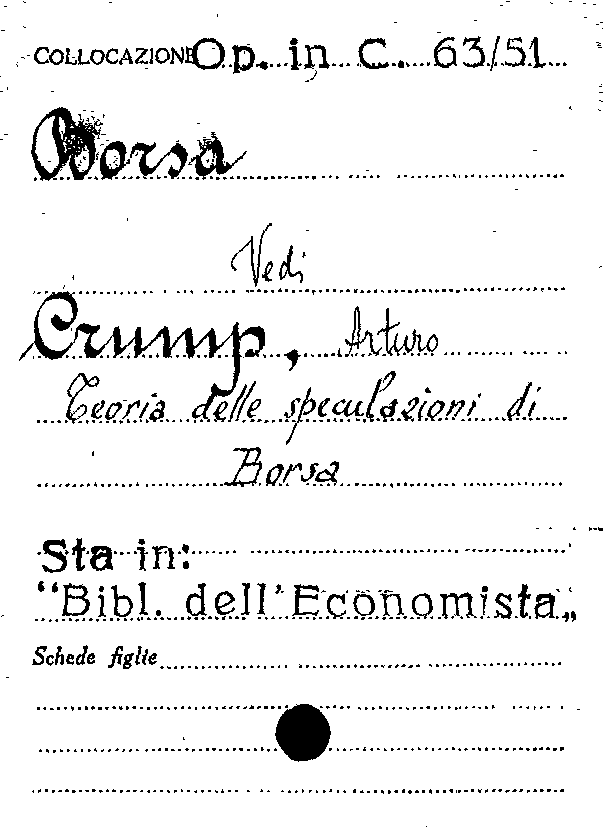 COLLOCAZIONE Op. in C. 63/51
Borsa
Vedi
Crump, Arturo
Teoria delle speculazioni di
Borsa
Sta in:
“Bibl. dell'Economista„
Schede figlie